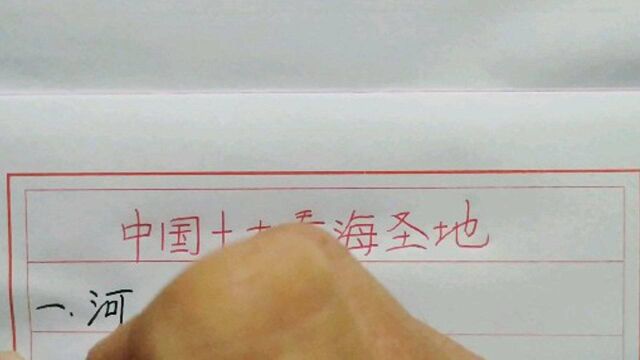 中国十大看海圣地
一.河